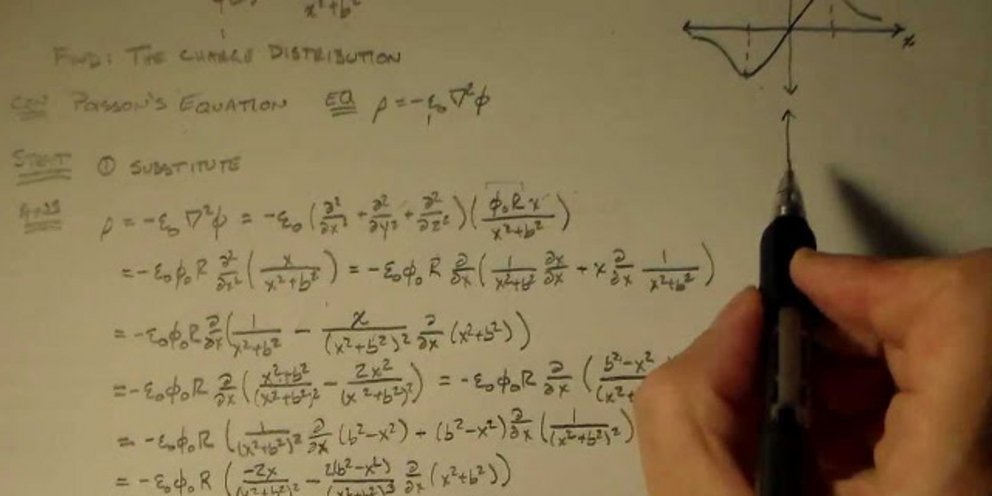 x²+b²
FIND: THE CHARGE DISTRIBUTION
x
CON POISSON'S EQUATION EQ ρ = -ε₀∇²φ
START ① SUBSTITUTE
ρ = -ε₀∇²φ = -ε₀(∂²/∂x² + ∂²/∂y² + ∂²/∂z²)(φ₀Rx/(x²+b²))
= -ε₀φ₀R ∂²/∂x²(x/(x²+b²)) = -ε₀φ₀R ∂/∂x(1/(x²+b²) ∂x/∂x + x ∂/∂x 1/(x²+b²))
= -ε₀φ₀R ∂/∂x(1/(x²+b²) - x/(x²+b²)² ∂/∂x (x²+b²))
= -ε₀φ₀R ∂/∂x((x²+b²)/(x²+b²)² - 2x²/(x²+b²)²) = -ε₀φ₀R ∂/∂x (b²-x²/(x²+
= -ε₀φ₀R (1/(x²+b²)² ∂/∂x (b²-x²) + (b²-x²) ∂/∂x (1/(x²+b²)²)
= -ε₀φ₀R (-2x/(x²+b²)² - 2(b²-x²)/(x²+b²)³ ∂/∂x (x²+b²))